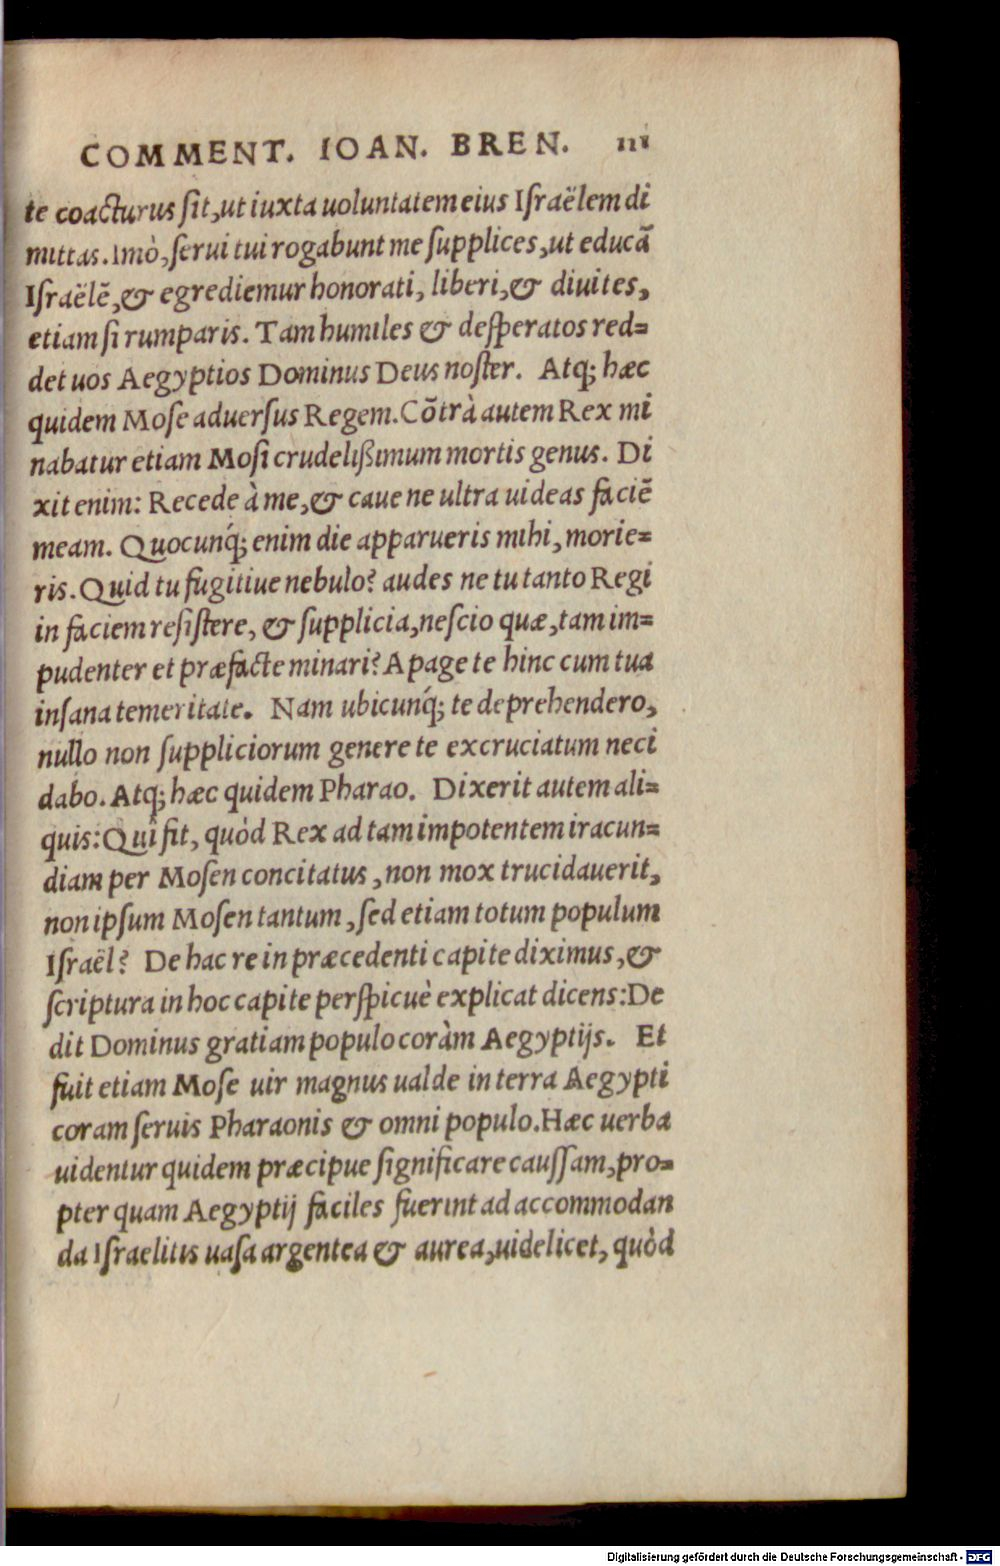 COMMENT. IOAN. BREN. 111
te coacturus ſit, ut iuxta uoluntatem eius Iſraëlem di
mittas. Imò, ſerui tui rogabunt me ſupplices, ut educã
Iſraëlẽ, & egrediemur honorati, liberi, & diuites,
etiam ſi rumparis. Tam humiles & deſperatos red=
det uos Aegyptios Dominus Deus noſter. Atq; hæc
quidem Moſe aduerſus Regem. Cõtrà autem Rex mi
nabatur etiam Moſi crudelißimum mortis genus. Di
xit enim: Recede à me, & caue ne ultra uideas faciẽ
meam. Quocunq́; enim die apparueris mihi, morie=
ris. Quid tu fugitiue nebulo? audes ne tu tanto Regi
in faciem reſiſtere, & ſupplicia, neſcio quæ, tam im=
pudenter et præfacte minari? Apage te hinc cum tua
inſana temeritate. Nam ubicunq́; te deprehendero,
nullo non ſuppliciorum genere te excruciatum neci
dabo. Atq; hæc quidem Pharao. Dixerit autem ali=
quis: Quî fit, quòd Rex ad tam impotentem iracun=
diam per Moſen concitatus, non mox trucidauerit,
non ipſum Moſen tantum, ſed etiam totum populum
Iſraël? De hac re in præcedenti capite diximus, &
ſcriptura in hoc capite perſpicuè explicat dicens: De
dit Dominus gratiam populo coràm Aegyptijs. Et
fuit etiam Moſe uir magnus ualde in terra Aegypti
coram ſeruis Pharaonis & omni populo. Hæc uerba
uidentur quidem præcipue ſignificare cauſſam, pro=
pter quam Aegyptij faciles fuerint ad accommodan
da Iſraelitis uaſa argentea & aurea, uidelicet, quòd
Digitalisierung gefördert durch die Deutsche Forschungsgemeinschaft - DFG